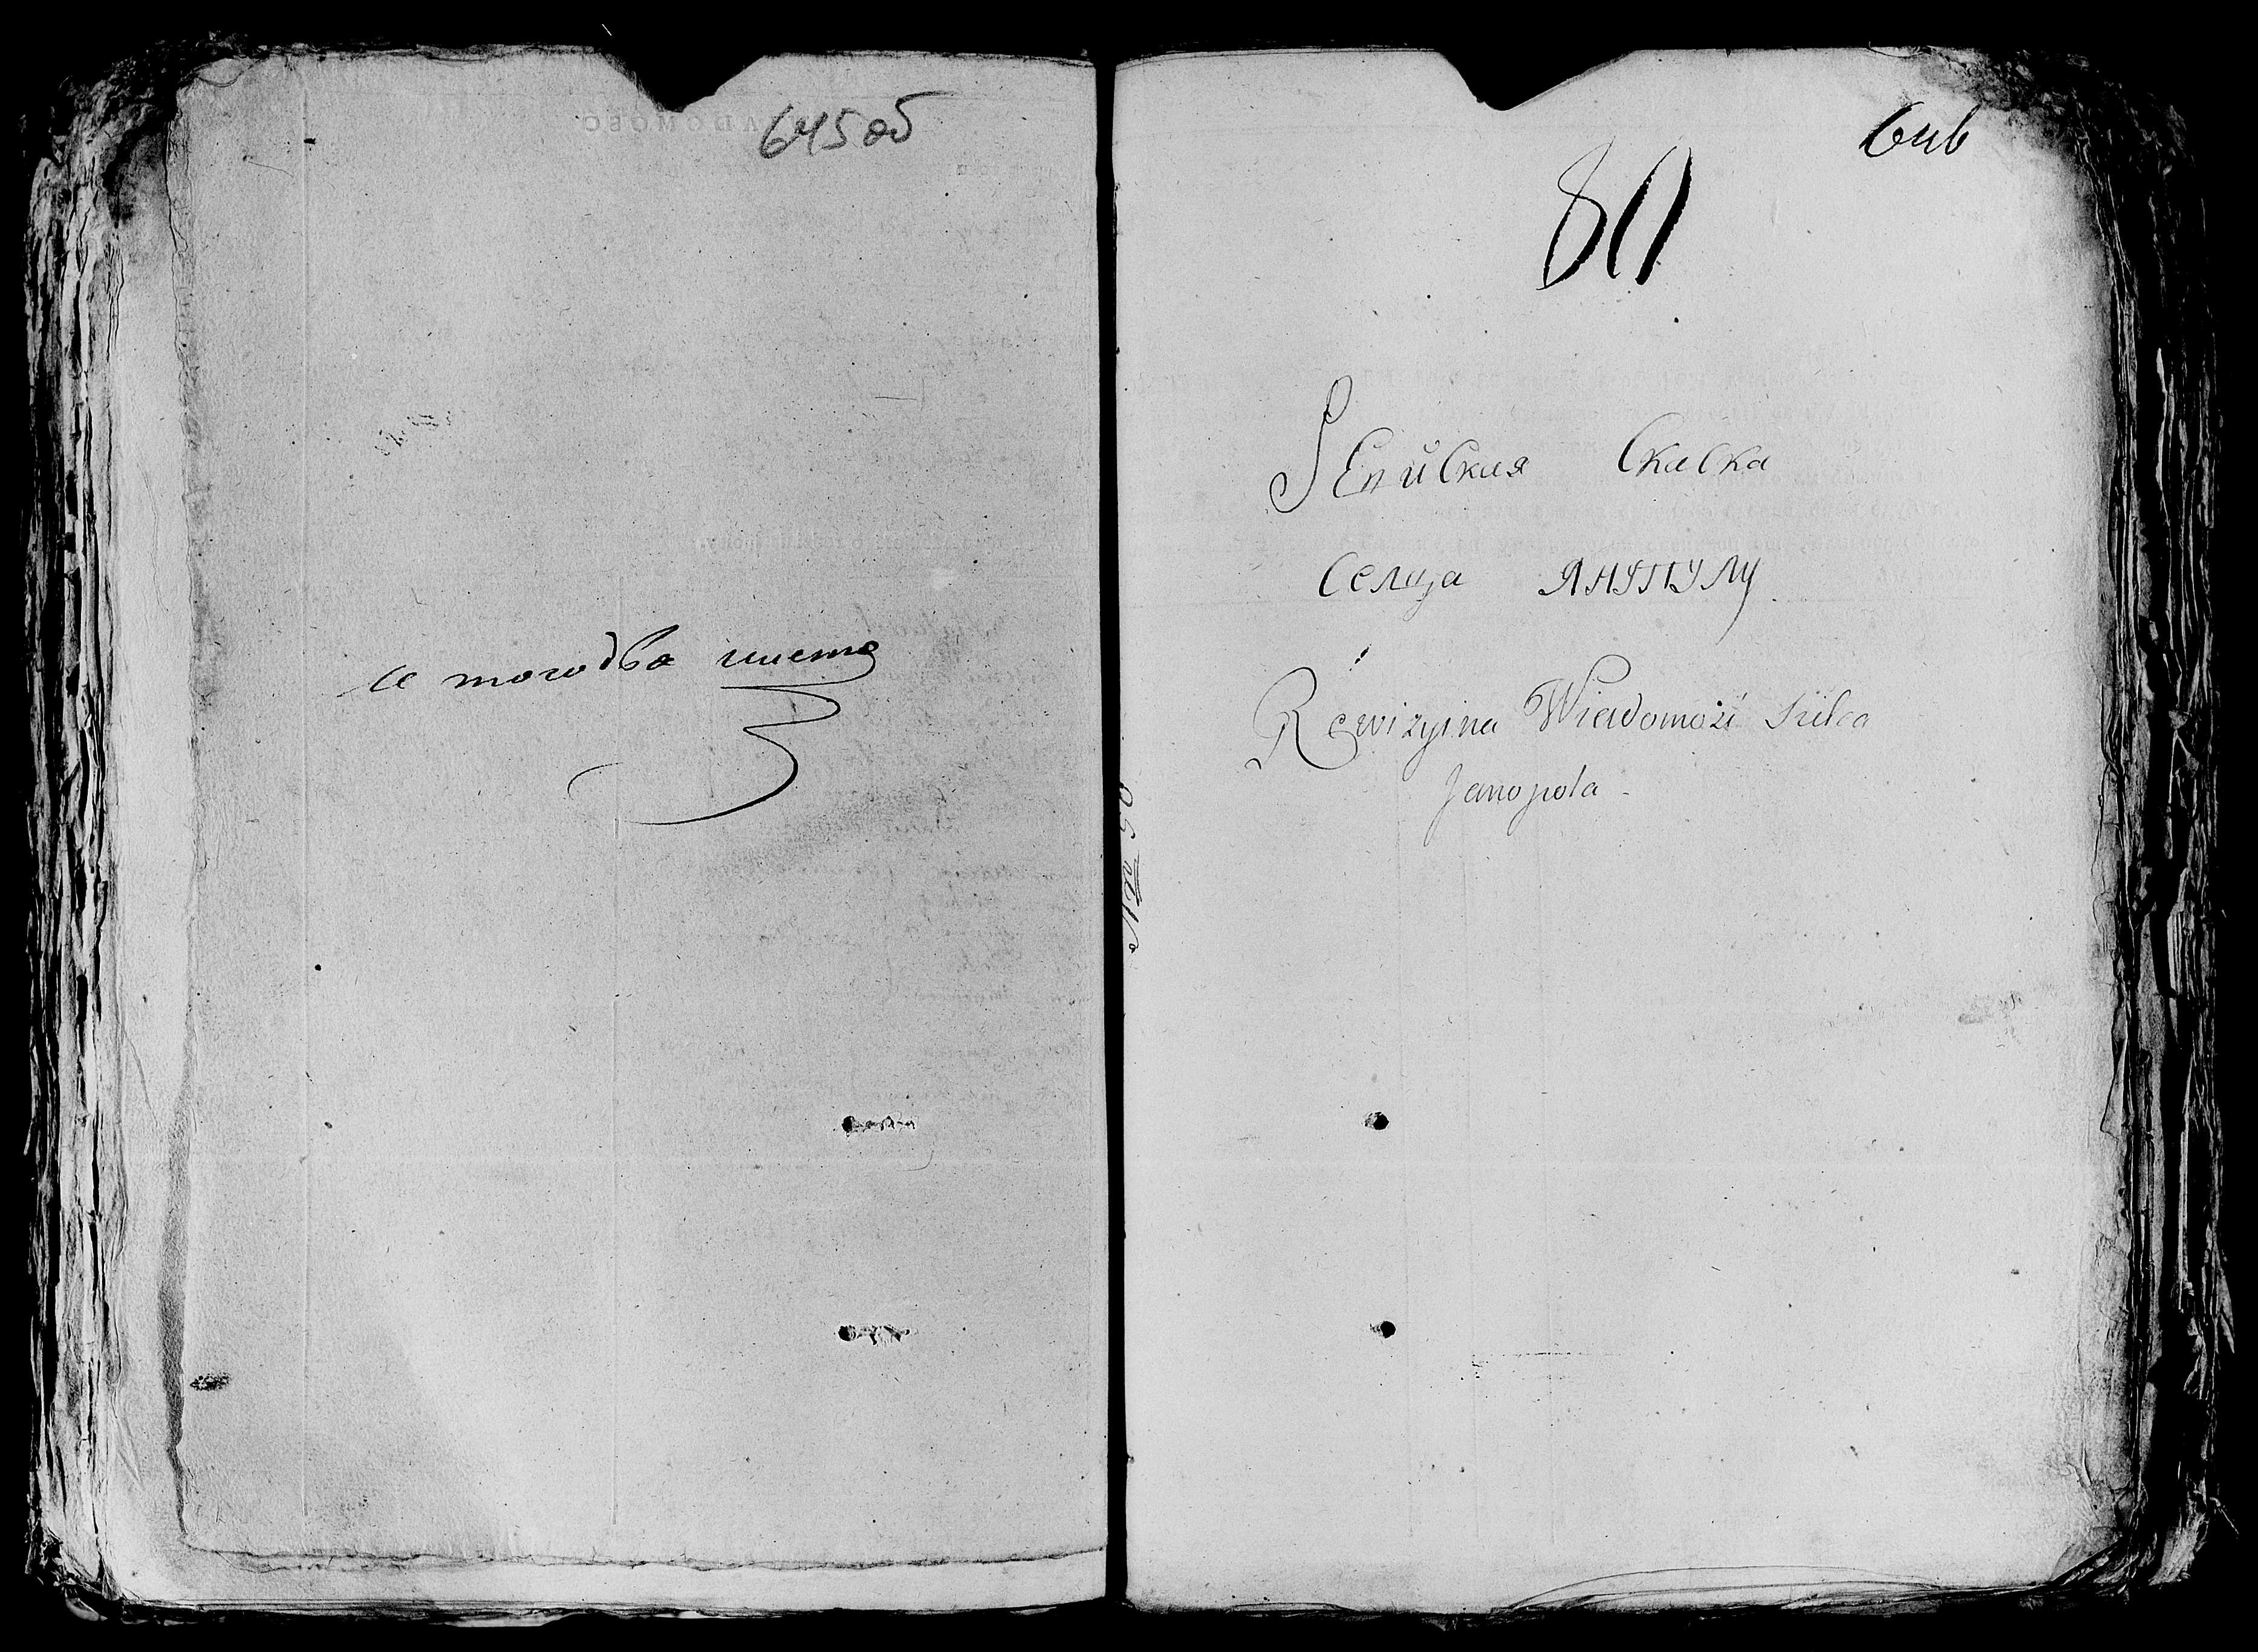 645 об
се того два листа
646
80
Ревийская Скаска
Селца Янупулу
Rewizyina Wiadomość Sielca
Janopola